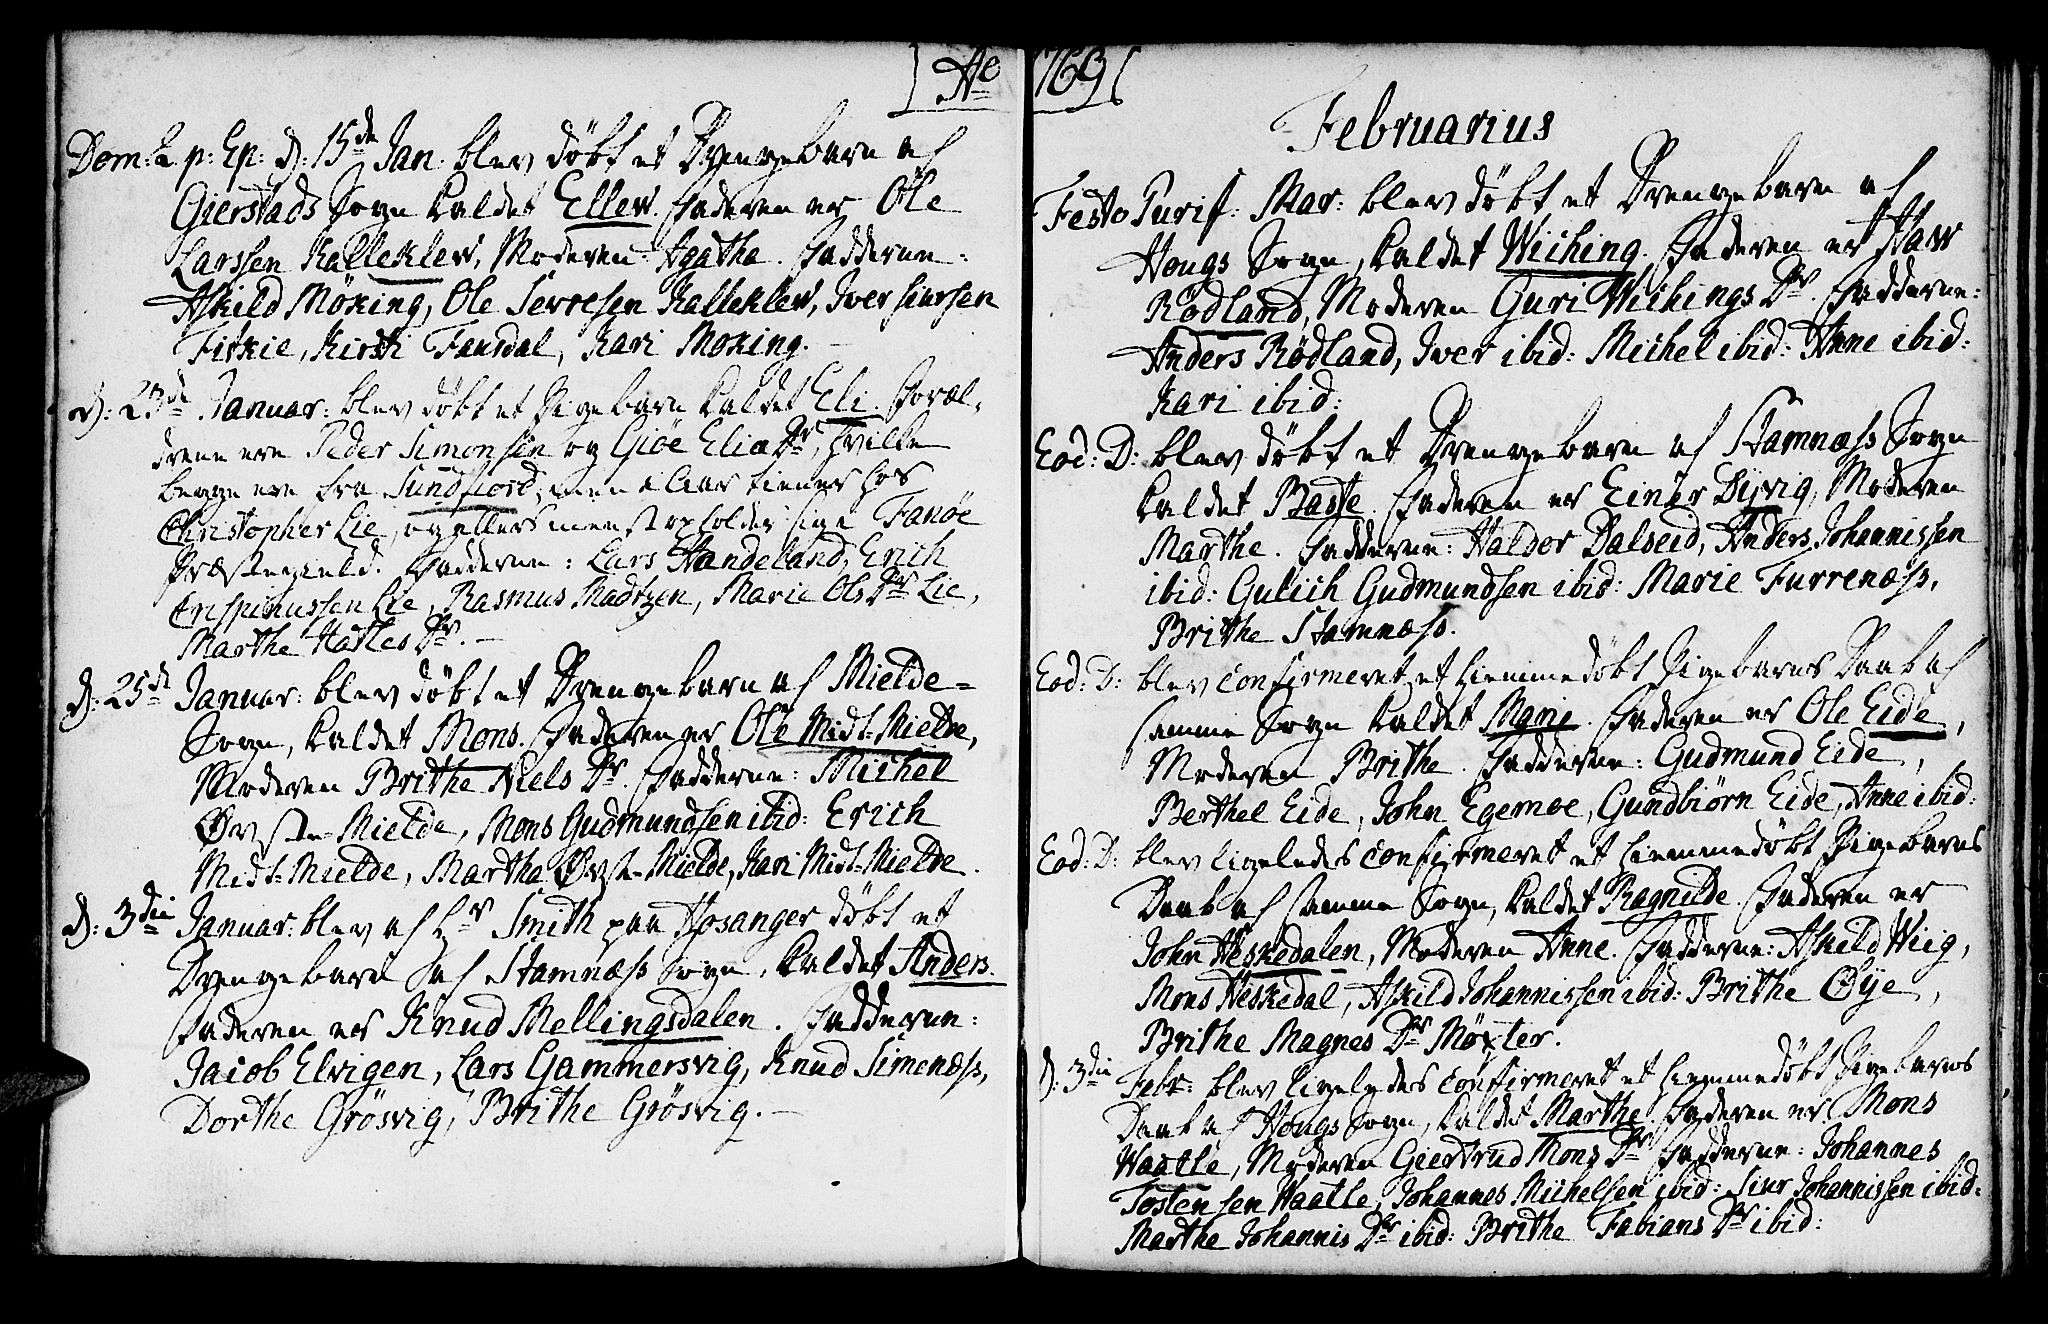 Ao 1769
Dom: 2 p: Ep: d: 15de Jan: blev döbt et Drengebarn af
Gierstads Sogn kaldet Ellew. Faderen er Ole
Larssen Kalleklew, Moderen Agatha. Fadderne:
Askild Möking, Ole Serresen Kalleklew, Iver Siursen
Fiskie, Kirsti Fausdal, Kari Moking.
d: 23de Januar: blev döbt et Pigebarn kaldet Eli. Foræl-
drene ere Peder Simonsen og Giöe Eliæ Dr, hvilke
begge ere fra Sundfiord, men i Aar tiener hos
Christopher Lie, og ellers meest opholder sig i Fanöe
Præstegield. Fadderne: Lars Handeland, Erich
Crispinussen Lie, Rasmus Madtzen, Marie Ols Dr Lie,
Marthe Hatles Dr.
d: 25de Januar: blev döbt et Drengebarn af Mielde-
Sogn, kaldet Mons. Faderen er Ole Midt-Mielde,
Moderen Brithe Niels Dr. Fadderne: Michel
Övste-Mielde, Mons Gudmundsen ibid: Erich
Midt-Mielde, Martha Övste-Mielde, Kari Midt-Mielde.
d: 3die Januar: blev af Hr Smith paa Hosanger döbt et
Drengebarn af Stamnæss Sogn, kaldet Anders.
Faderen er Knud Mellingsdalen. Fadderne:
Jacob Elvigen, Lars Gammersvig, Knud Simenæss,
Dorthe Grösvig, Brithe Grösvig.
Februarius
Festo Purif: Mar: blev döbt et Drengebarn af
Hougs Sogn, kaldet Wiching. Faderen er Haw
Rödland, Moderen Guri Wichings Dr. Fadderne:
Anders Rödland, Iver ibid: Michel ibid: Anne ibid:
Kari ibid:
Eod: D: blev döbt et Drengebarn af Stamnæss Sogn
kaldet Baste. Faderen er Einer Dyvig, Moderen
Marthe. Fadderne: Haldor Dalseid, Anders Johannissen
ibid: Gulich Gudmundsen ibid: Marie Furrenæss,
Brithe Stamnæss.
Eod: D: blev confirmeret et hiemmedöbt Pigebarns Daab af
samme Sogn kaldet Mari. Faderen er Ole Eide,
Moderen Brithe. Fadderne: Gudmund Eide,
Berthel Eide, John Egemoe, Gundbiörn Eide, Anne ibid:
Eod: D: blev ligeledes confirmeret et hiemmedöbt Pigebarns
Daab af samme Sogn, kaldet Ragnilde. Faderen er
John Heskedalen, Moderen Anne. Fadderne: Askeld Wiig,
Mons Heskedal, Askild Johannissen ibid: Brithe Öye,
Brithe Magnes Dr Möster.
d: 3die Febr: blev ligeledes confirmeret et hiemmedöbt Pigebarns
Daab af Hougs Sogn, kaldet Marthe. Faderen er Mons
Waatle, Moderen Giertrud Mons Dr. Fadderne: Johannes
Tostensen Waatle, Johannes Michelsen ibid: Siur Johannissen ibid:
Marthe Johannis Dr ibid: Brithe Fabians Dr ibid: